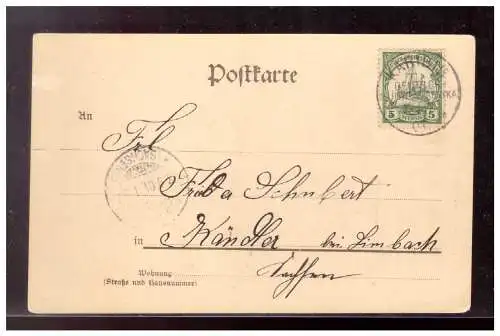 Postkarte
An
Frl
Frida Schubert
in Kändler bei Limbach
Sachsen
Wohnung
(Straße und Hausnummer)
5 5